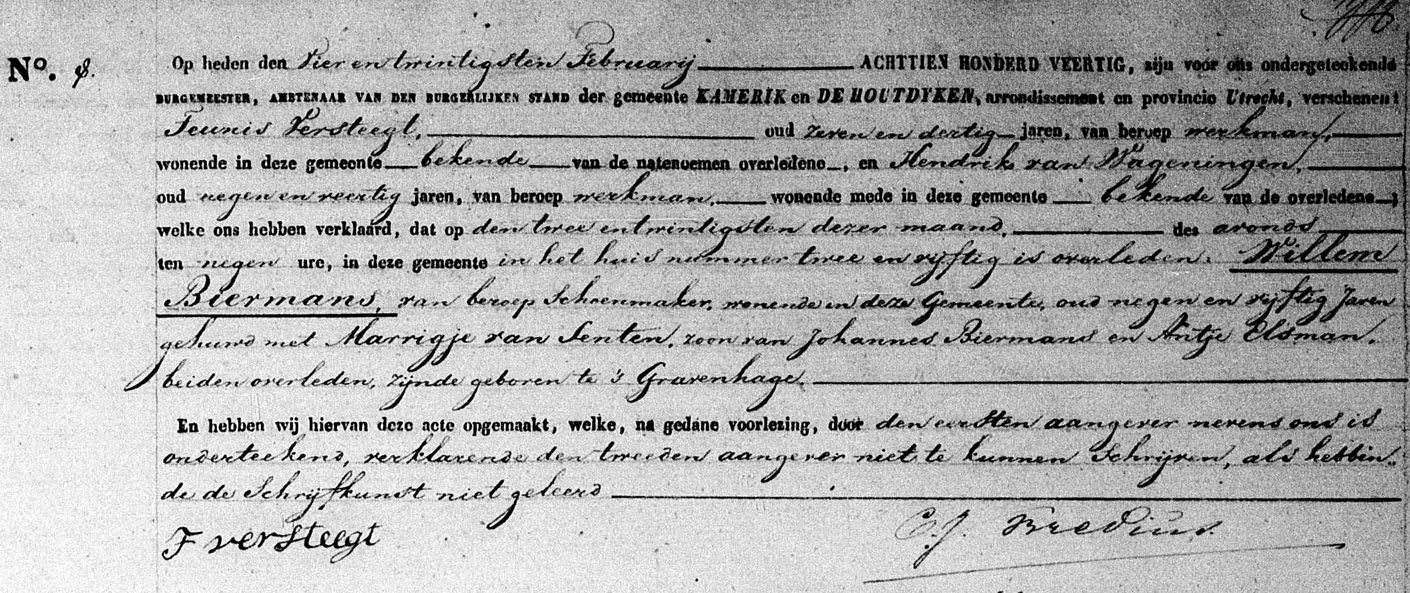 No. 8.
Op heden den Vier en twintigsten Februarij ACHTTIEN HONDERD VEERTIG, zijn voor ons ondergeteekende
BURGEMEESTER, AMBTENAAR VAN DEN BURGERLIJKEN STAND der gemeente KAMERIK en DE HOUTDYKEN, arrondissement en provincie Utrecht, verschenen:
Teunis Versteegt, oud zeven en dertig jaren, van beroep werkman,
wonende in deze gemeente bekende van de natenoemen overledene, en Hendrik van Wageningen,
oud negen en veertig jaren, van beroep werkman, wonende mede in deze gemeente bekende van de overledene;
welke ons hebben verklaard, dat op den twee entwintigsten dezer maand, des avonds
ten negen ure, in deze gemeente in het huis nummer twee en vijftig is overleden: Willem
Biermans, van beroep Schoenmaker, wonende in deze Gemeente, oud negen en vijftig Jaren
gehuwd met Marrigje van Senten, zoon van Johannes Biermans en Antje Elsman,
beiden overleden, zijnde geboren te 's Gravenhage.
En hebben wij hiervan deze acte opgemaakt, welke, na gedane voorlezing, door den eersten aangever nevens ons is
onderteekend, verklarende den tweeden aangever niet te kunnen Schrijven, als hebbin„
de de Schrijfkunst niet geleerd
T versteegt C.J. Bredius.